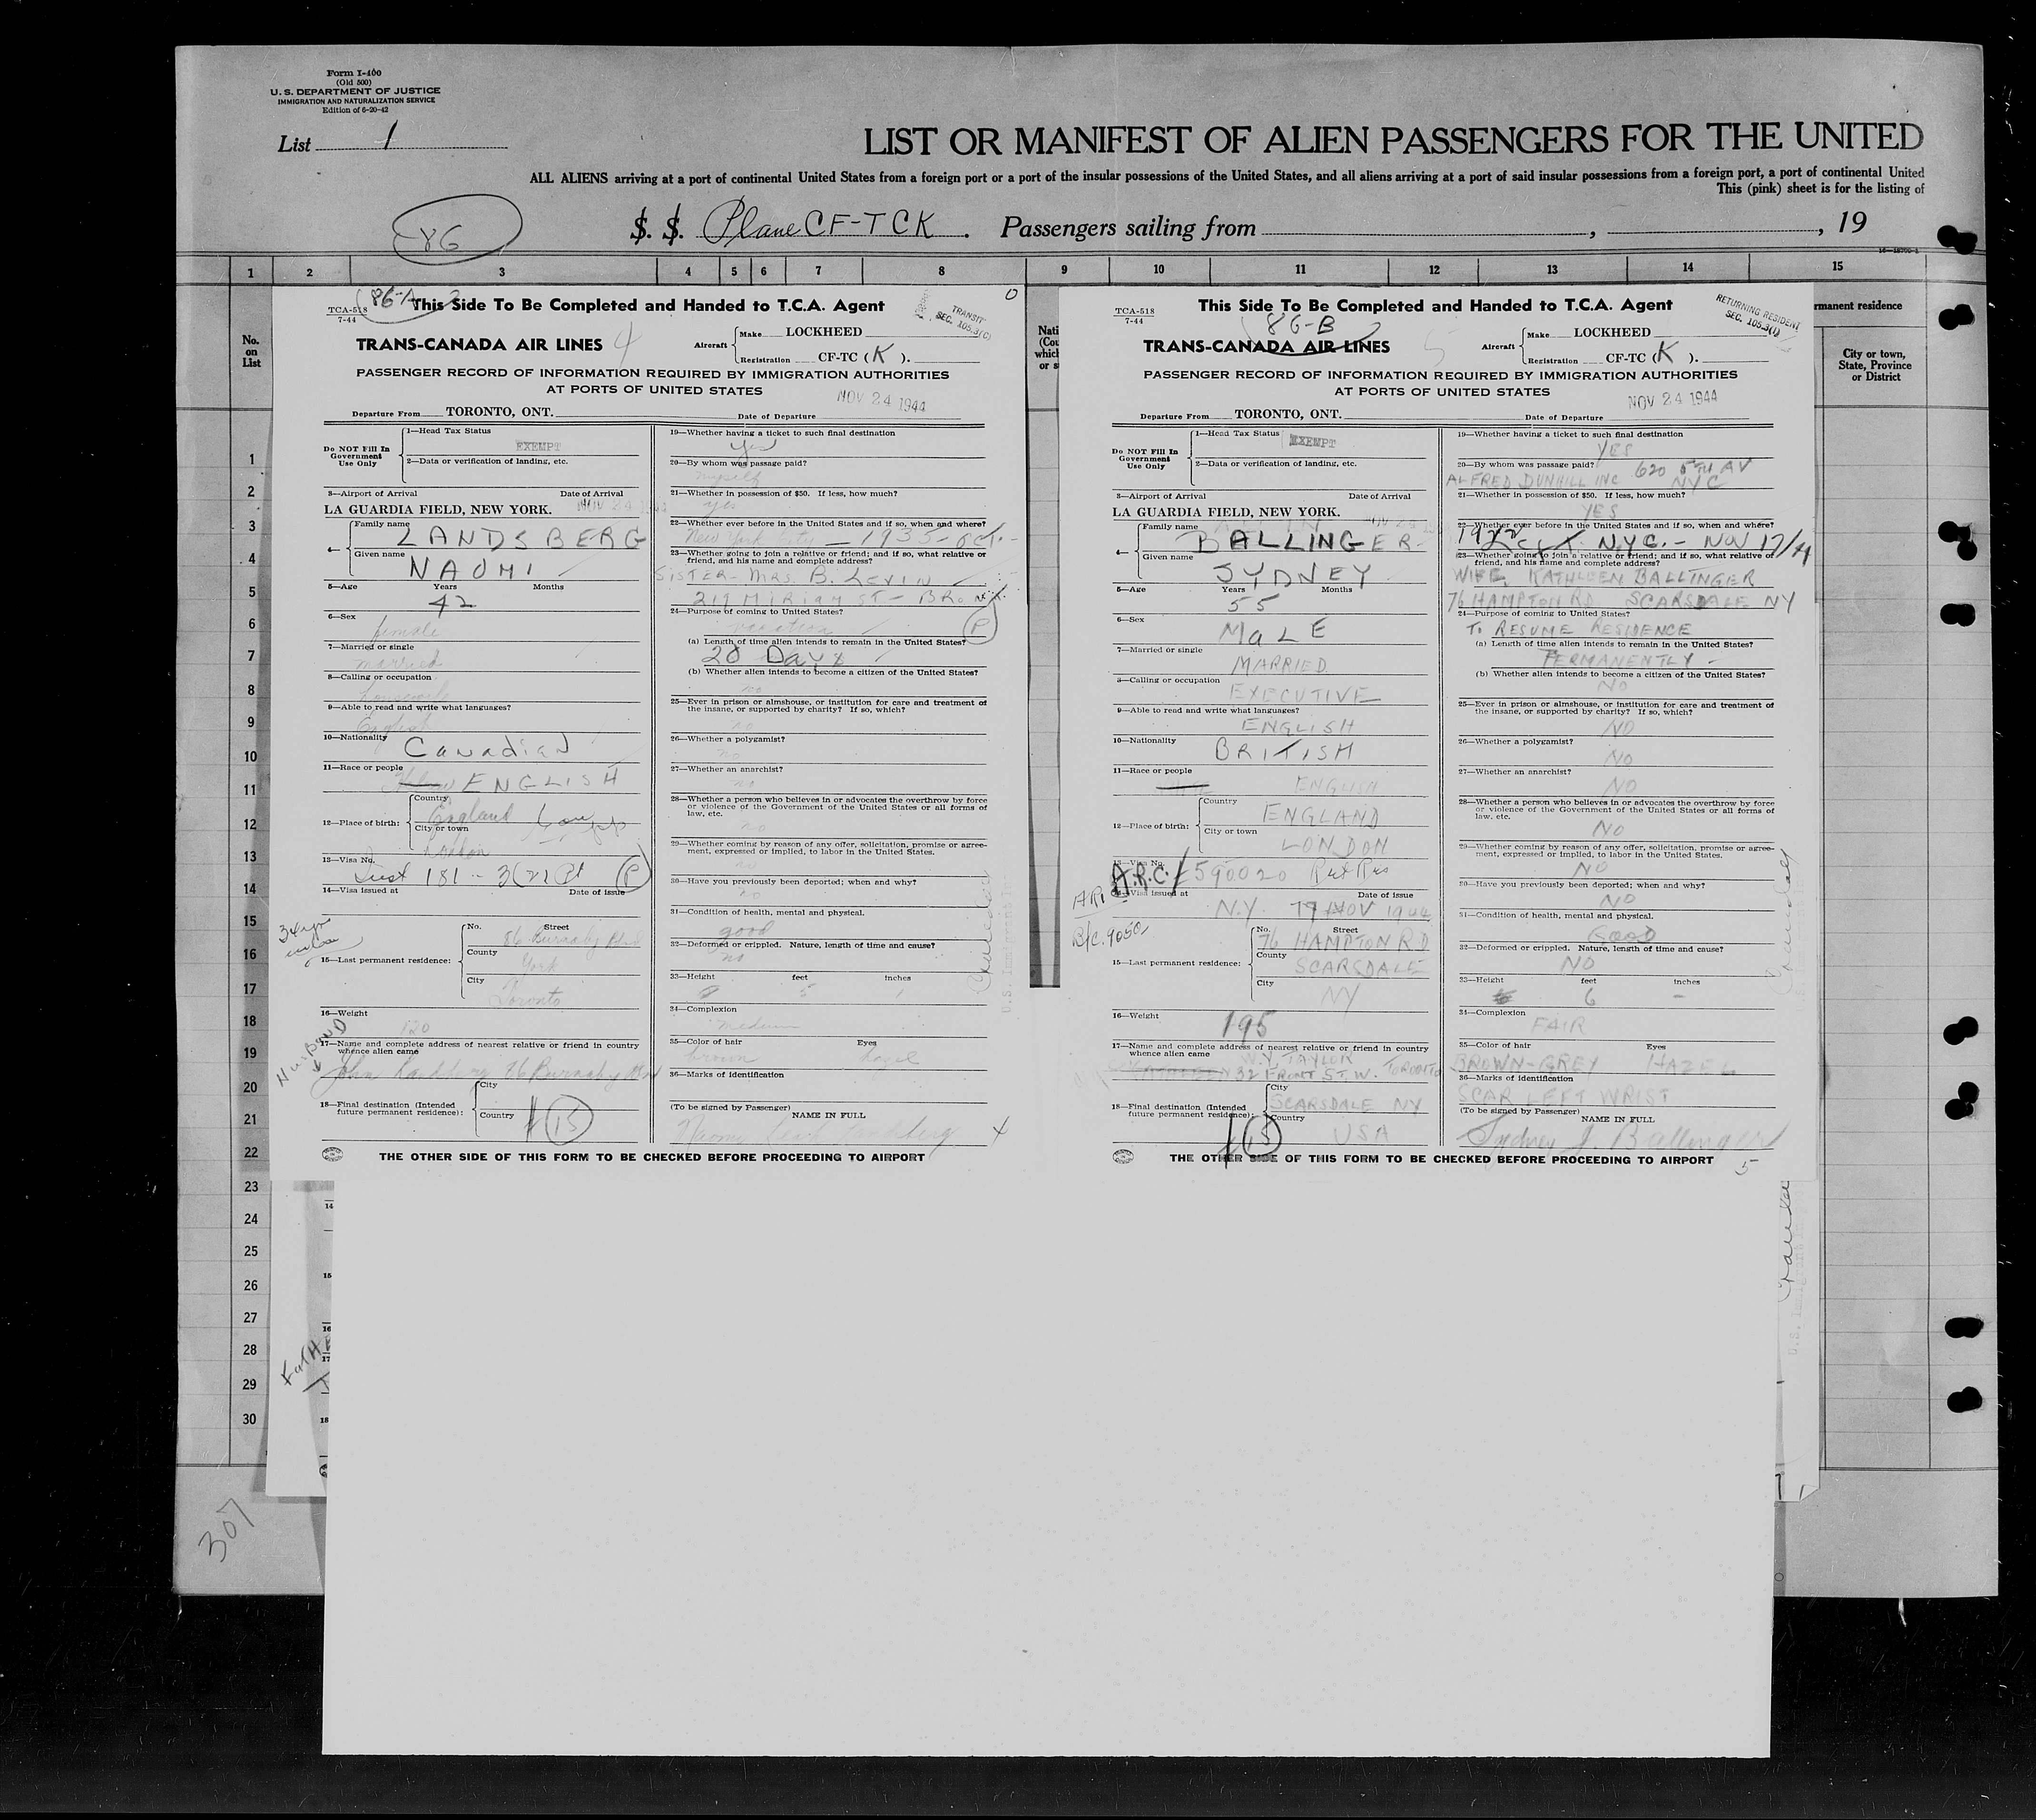 Form I-400
(Old 500)
U. S. DEPARTMENT OF JUSTICE
IMMIGRATION AND NATURALIZATION SERVICE
Edition of 6-20-42
List 1
LIST OR MANIFEST OF ALIEN PASSENGERS FOR THE UNITED
ALL ALIENS arriving at a port of continental United States from a foreign port or a port of the insular possessions of the United States, and all aliens arriving at a port of said insular possessions from a foreign port, a port of continental United
This (pink) sheet is for the listing of
86
S. S. Plane CF-TCK. Passengers sailing from , , 19
1 2 3 4 5 6 7 8 9 10 11 12 13 14 15
No. on List
rmanent residence
City or town, State, Province or District
1
2
3
4
5
6
7
8
9
10
11
12
13
14
15
16
17
18
19
20
21
22
23
24
25
26
27
28
29
30
307
86-A
This Side To Be Completed and Handed to T.C.A. Agent
TCA-518
7-44
TRANSIT
SEC. 105.3(C)
TRANS-CANADA AIR LINES 4
Aircraft Make LOCKHEED
Registration CF-TC (K).
PASSENGER RECORD OF INFORMATION REQUIRED BY IMMIGRATION AUTHORITIES
AT PORTS OF UNITED STATES
Departure From TORONTO, ONT. Date of Departure NOV 24 1944
Do NOT Fill In Government Use Only
1—Head Tax Status EXEMPT
2—Data or verification of landing, etc.
3—Airport of Arrival Date of Arrival
LA GUARDIA FIELD, NEW YORK. NOV 24 1944
4— Family name LANDSBERG
Given name NAOMI
5—Age Years Months
42
6—Sex
female
7—Married or single
married
8—Calling or occupation
housewife
9—Able to read and write what languages?
English
10—Nationality Canadian
11—Race or people ENGLISH
12—Place of birth: Country England
City or town London
13—Visa No.
181-3
14—Visa issued at Date of issue
15—Last permanent residence: No. Street 86 Burnaby Blvd
County York
City Toronto
16—Weight
120
HUSBAND
17—Name and complete address of nearest relative or friend in country whence alien came
John Landsberg 86 Burnaby Blvd
18—Final destination (Intended future permanent residence): City
Country
15
19—Whether having a ticket to such final destination
yes
20—By whom was passage paid?
myself
21—Whether in possession of $50. If less, how much?
yes
22—Whether ever before in the United States and if so, when and where?
New York City — 1935 - Oct.
23—Whether going to join a relative or friend; and if so, what relative or friend, and his name and complete address?
SISTER - MRS. B. LEVIN
ST - BRONX
24—Purpose of coming to United States?
vacation
(a) Length of time alien intends to remain in the United States?
20 Days
(b) Whether alien intends to become a citizen of the United States?
no
25—Ever in prison or almshouse, or institution for care and treatment of the insane, or supported by charity? If so, which?
no
26—Whether a polygamist?
no
27—Whether an anarchist?
no
28—Whether a person who believes in or advocates the overthrow by force or violence of the Government of the United States or all forms of law, etc.
no
29—Whether coming by reason of any offer, solicitation, promise or agreement, expressed or implied, to labor in the United States.
no
30—Have you previously been deported; when and why?
no
31—Condition of health, mental and physical.
good
32—Deformed or crippled. Nature, length of time and cause?
no
33—Height feet inches
5 1
34—Complexion
medium
35—Color of hair Eyes
brown hazel
36—Marks of identification
(To be signed by Passenger) NAME IN FULL
THE OTHER SIDE OF THIS FORM TO BE CHECKED BEFORE PROCEEDING TO AIRPORT
This Side To Be Completed and Handed to T.C.A. Agent
TCA-518
7-44
86-B
RETURNING RESIDENT
SEC. 105.3(I)
TRANS-CANADA AIR LINES 5
Aircraft Make LOCKHEED
Registration CF-TC (K).
PASSENGER RECORD OF INFORMATION REQUIRED BY IMMIGRATION AUTHORITIES
AT PORTS OF UNITED STATES
Departure From TORONTO, ONT. Date of Departure NOV 24 1944
Do NOT Fill In Government Use Only
1—Head Tax Status EXEMPT
2—Data or verification of landing, etc.
3—Airport of Arrival Date of Arrival
LA GUARDIA FIELD, NEW YORK.
4— Family name BALLINGER
Given name SYDNEY
5—Age Years Months
55
6—Sex
MALE
7—Married or single
MARRIED
8—Calling or occupation
EXECUTIVE
9—Able to read and write what languages?
ENGLISH
10—Nationality BRITISH
11—Race or people ENGLISH
12—Place of birth: Country ENGLAND
City or town LONDON
13—Visa No.
A.R.C. 590020
14—Visa issued at Date of issue
N.Y. 17 NOV 1944
15—Last permanent residence: No. Street 76 HAMPTON RD
County SCARSDALE
City NY
16—Weight
195
17—Name and complete address of nearest relative or friend in country whence alien came
W.Y. TAYLOR
32 FRONT ST. W. TORONTO
18—Final destination (Intended future permanent residence): City SCARSDALE NY
Country USA
15
19—Whether having a ticket to such final destination
YES
20—By whom was passage paid? 620 5TH AV
ALFRED DUNHILL INC NYC
21—Whether in possession of $50. If less, how much?
YES
22—Whether ever before in the United States and if so, when and where?
N.Y.C. - NOV 17/44
23—Whether going to join a relative or friend; and if so, what relative or friend, and his name and complete address?
WIFE, KATHLEEN BALLINGER
76 HAMPTON RD SCARSDALE NY
24—Purpose of coming to United States?
TO RESUME RESIDENCE
(a) Length of time alien intends to remain in the United States?
PERMANENTLY
(b) Whether alien intends to become a citizen of the United States?
NO
25—Ever in prison or almshouse, or institution for care and treatment of the insane, or supported by charity? If so, which?
NO
26—Whether a polygamist?
NO
27—Whether an anarchist?
NO
28—Whether a person who believes in or advocates the overthrow by force or violence of the Government of the United States or all forms of law, etc.
NO
29—Whether coming by reason of any offer, solicitation, promise or agreement, expressed or implied, to labor in the United States.
NO
30—Have you previously been deported; when and why?
NO
31—Condition of health, mental and physical.
GOOD
32—Deformed or crippled. Nature, length of time and cause?
NO
33—Height feet inches
6 -
34—Complexion
FAIR
35—Color of hair Eyes
BROWN-GREY HAZEL
36—Marks of identification
SCAR LEFT WRIST
(To be signed by Passenger) NAME IN FULL
Sydney J. Ballinger
THE OTHER SIDE OF THIS FORM TO BE CHECKED BEFORE PROCEEDING TO AIRPORT
5